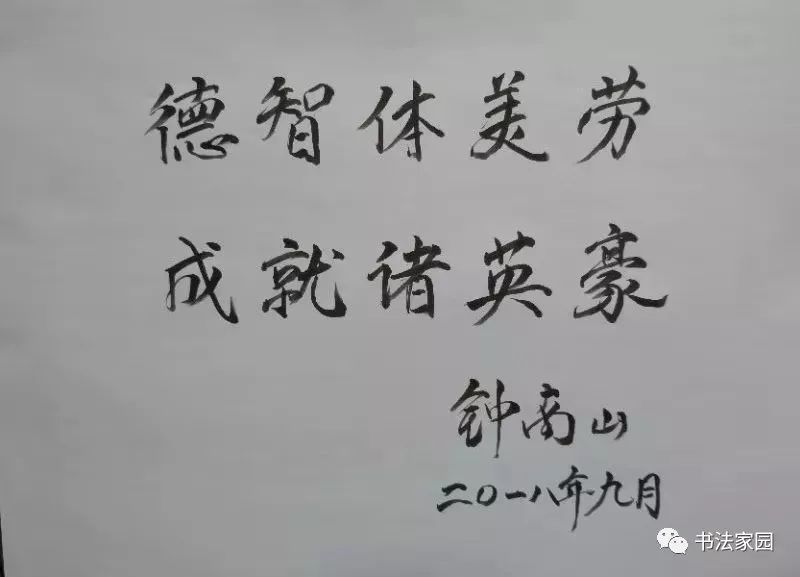 德智体美劳
成就诸英豪
钟南山
二〇一八年九月
书法家园